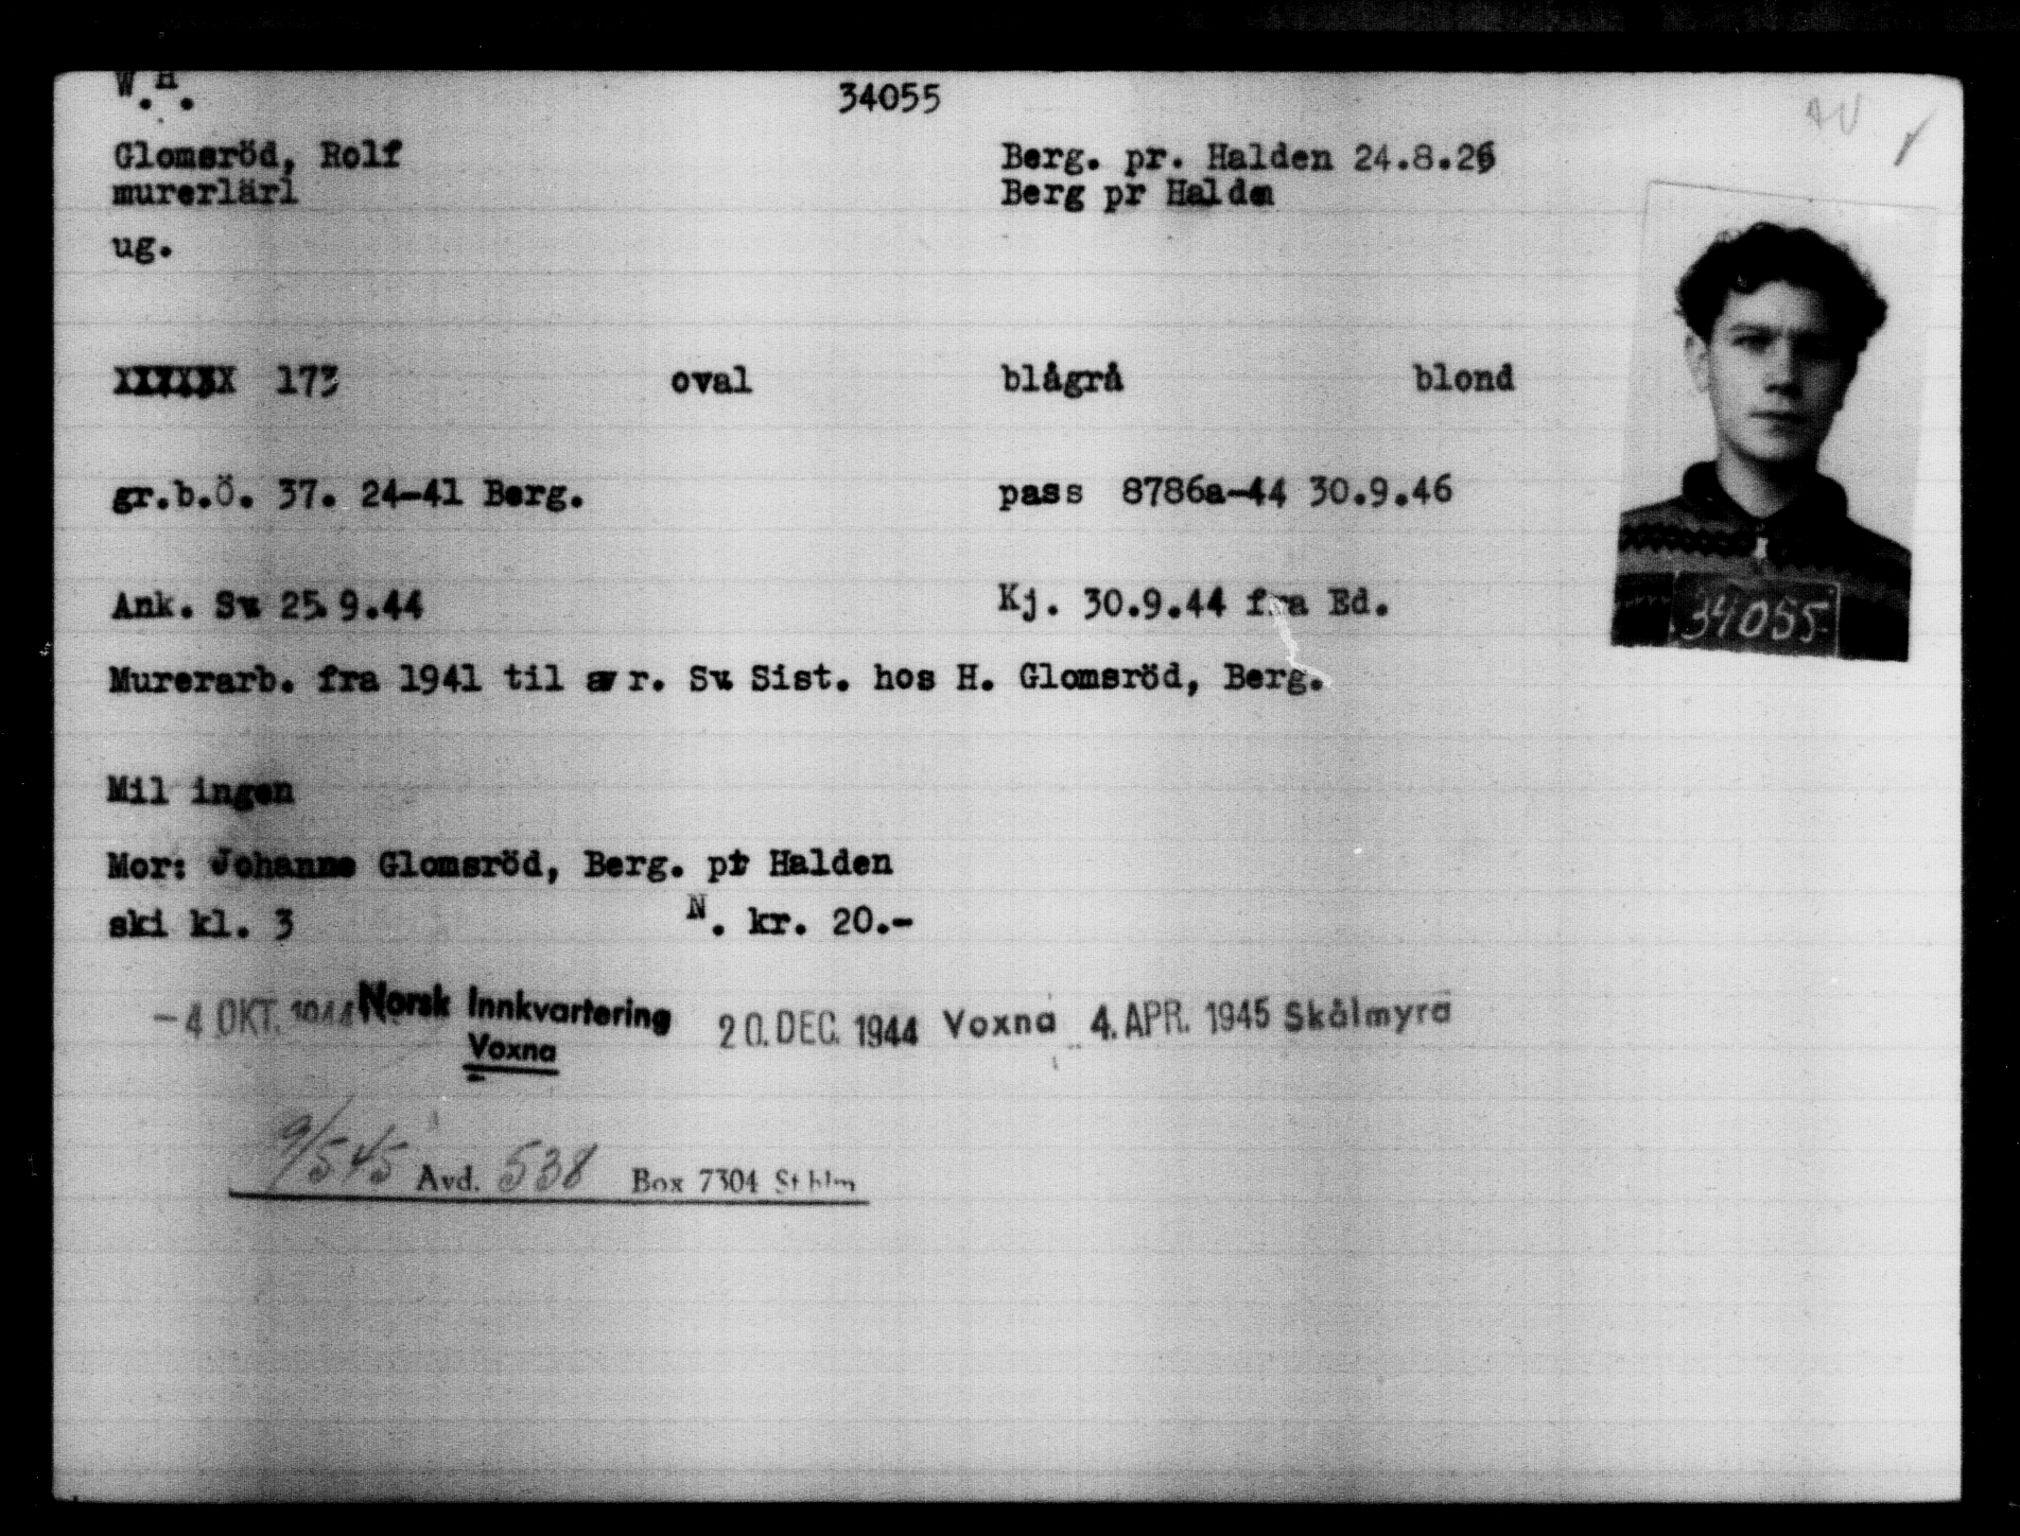 W.H.
34055
Glomsröd, Rolf Berg. pr. Halden 24.8.26
murerlärl Berg pr Halden
ug.
XXXXXX 173 oval blågrå blond
gr.b.Ö. 37. 24-41 Berg. pass 8786a-44 30.9.46
Ank. Sv. 25.9.44 Kj. 30.9.44 fra Ed.
34055
Murerarb. fra 1941 til avr. Sv. Sist. hos H. Glomsröd, Berg.
Mil ingen
Mor: Johanne Glomsröd, Berg. pr Halden
ski kl. 3 N. kr. 20.-
-4 OKT. 1944 Norsk Innkvartering 20. DEC. 1944 Voxna 4. APR. 1945 Skålmyra
Voxna
9/5 45 Avd. 538 Box 7304 Sthlm